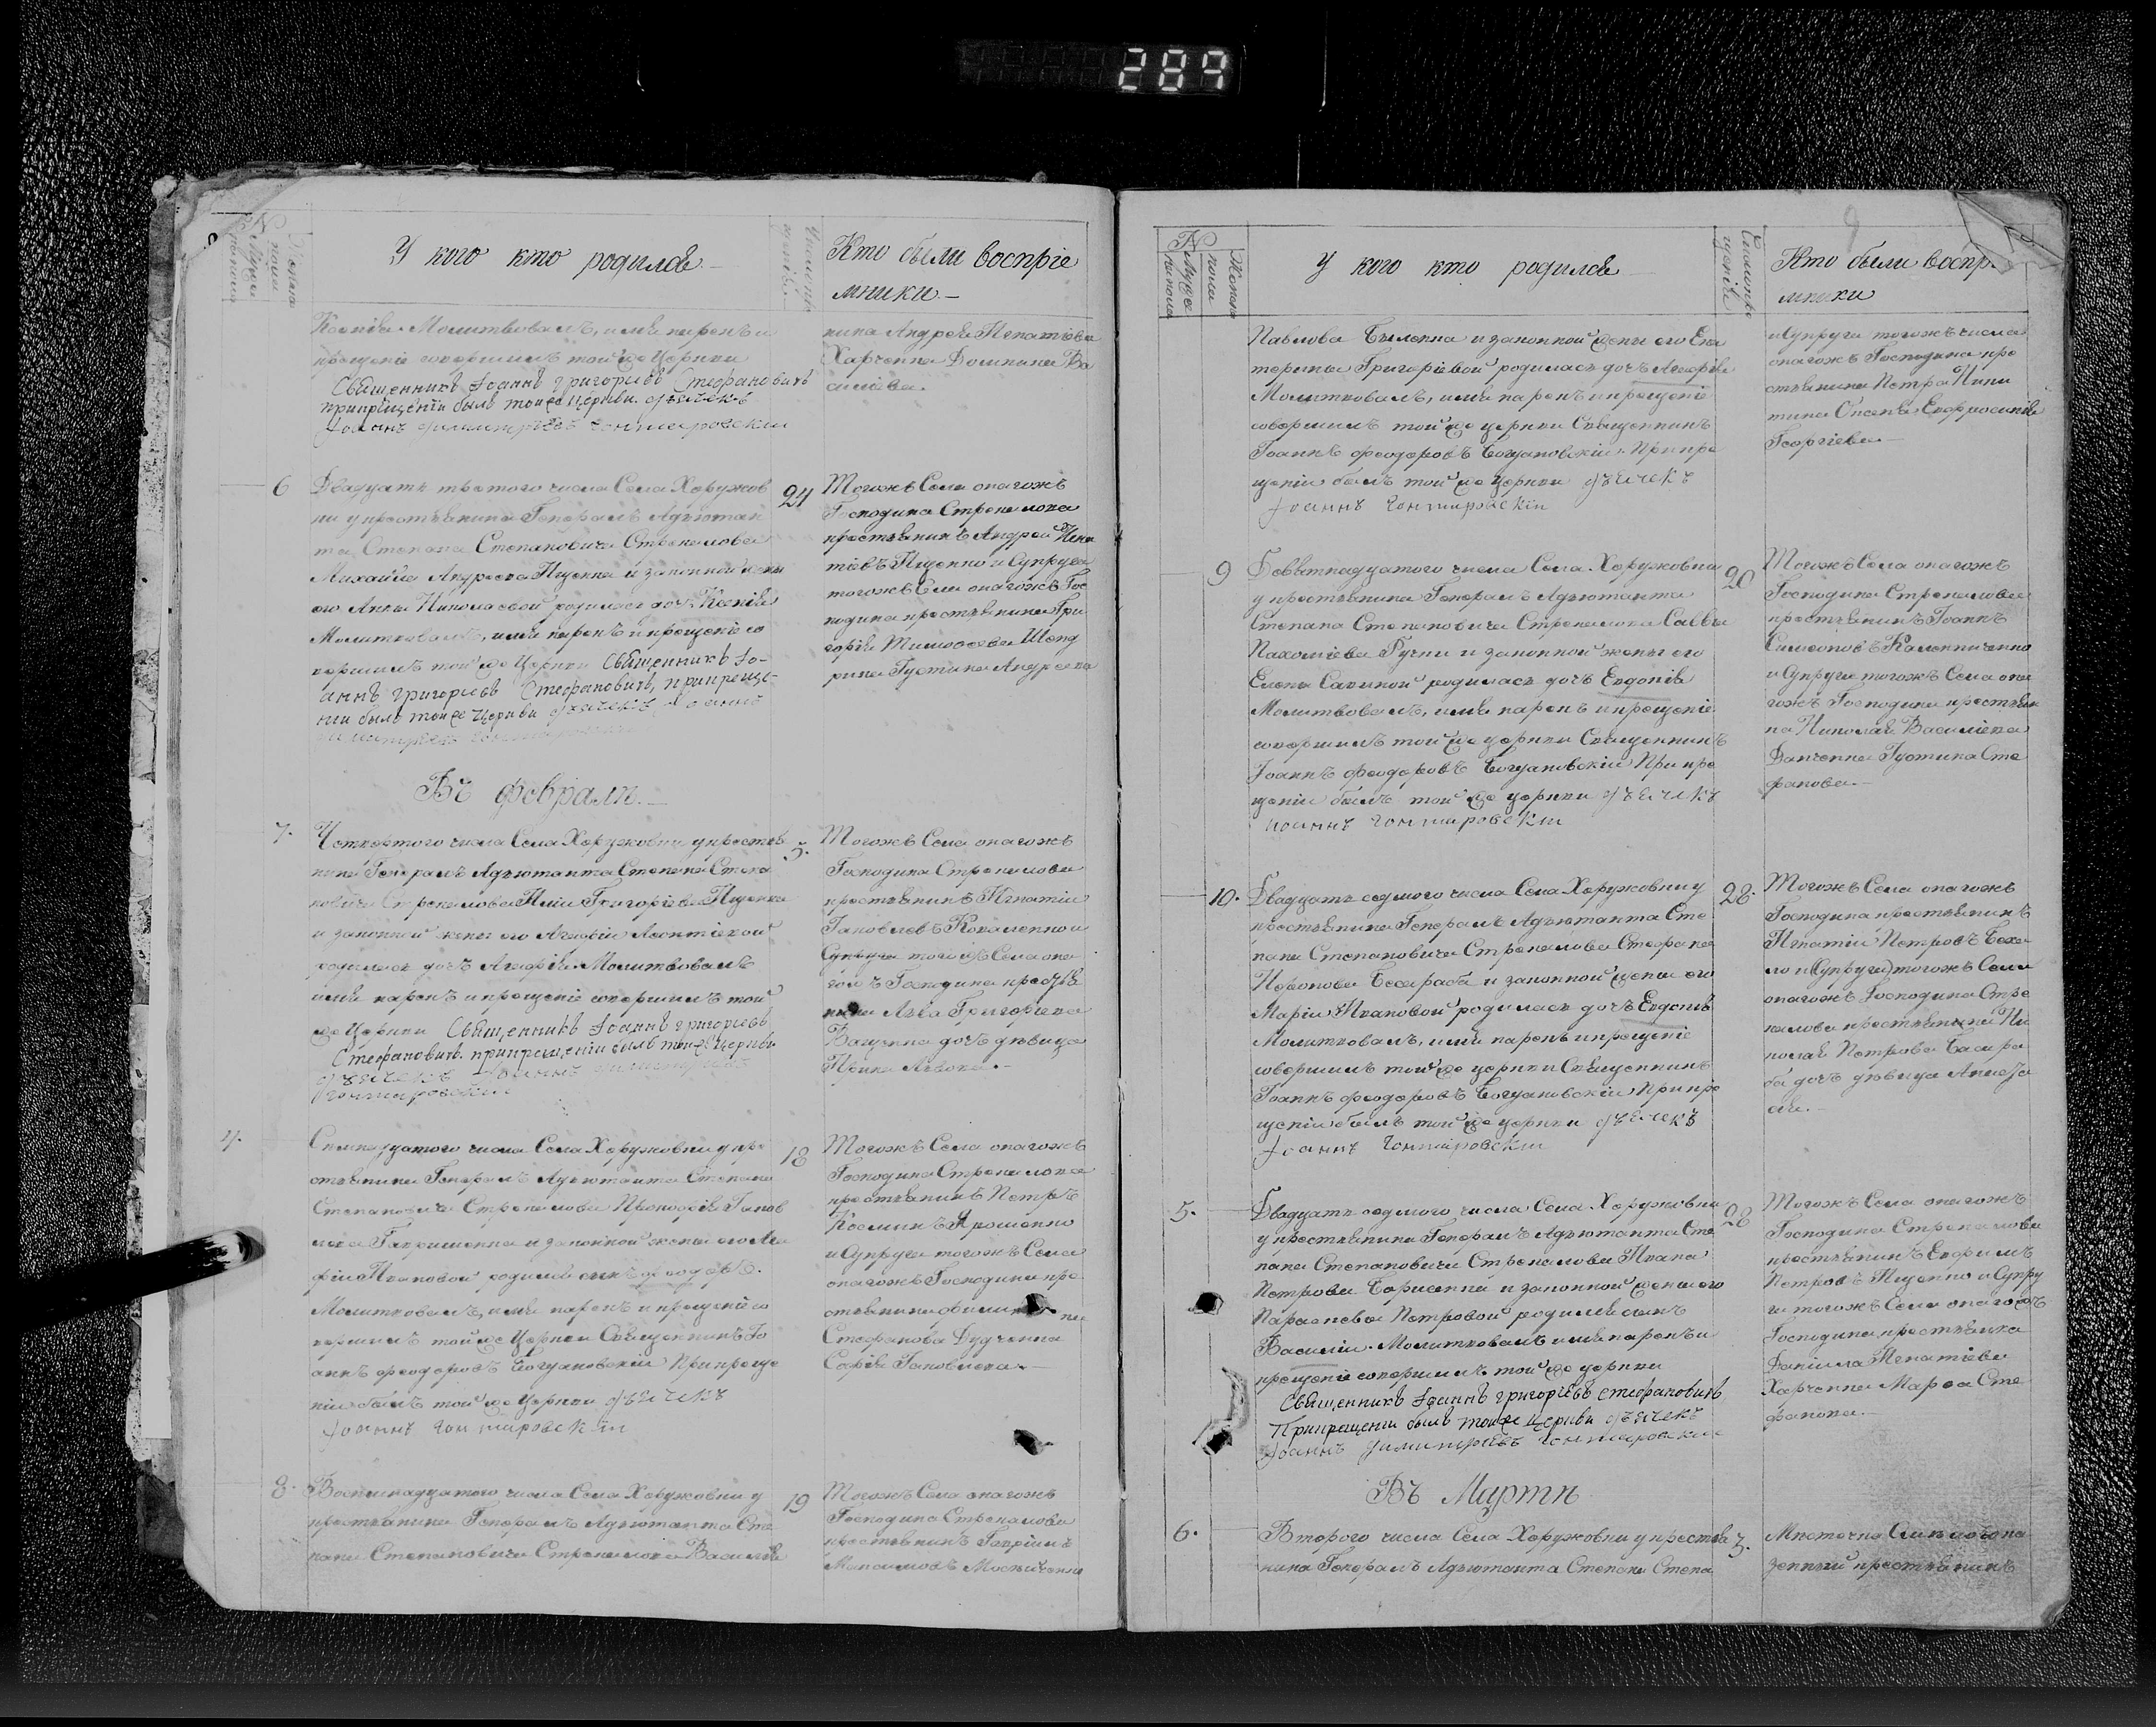 289
№
Мужеска
пола
Женска
пола
У кого кто родился
Кто были воспріе
мники
Ксенія. Молитвовалъ, имя нарекъ и
крещеніе совершилъ той же Церкви
Священникъ Іоаннъ Григорьевъ Стефановичъ
прикрещеніи былъ тойже церкви дьячекъ
Іоаннъ Димитріевъ Гонтаровскіи
нина Андрея Игнатіева
Харченка Домникія Ва
силіева.
6
Двадцать третого числа Села Харужов
ки у крестьянина Генералъ Адъютан
та Степана Степановича Стрекалова
Михайла Андреева Тищенка и законной жены
его Анны Николаевой родилась дочь Ксенія
Молитвовалъ, имя нарекъ и крещеніе со
вершилъ той же Церкви Священникъ Іо-
аннъ Григорьевъ Стефановичъ, прикреще-
ніи былъ тойже Церкви дьячекъ Іоаннъ
24
Тогожъ Села онагожъ
Господина Стрекалова
крестьянинъ Андрей Игна
тіевъ Тищенко и Супруга
тогожъ Села онагожъ Гос
подина крестьянина Гри
горія Тимофеева Шенд
рика Густина Андреева
Въ Февралѣ
7.
Четвертого числа Села Харужовки у крестья
нина Генералъ Адъютанта Степана Степа
новича Стрекалова Иліи Григоріева Тищенка
и законной жены его Агафіи Леонтіевой
родилась дочь Агафія Молитвовалъ
имя нарекъ и крещеніе совершилъ той
же Церкви Священникъ Іоаннъ Григорьевъ
Стефановичъ прикрещеніи былъ тойже Церкви
дьячекъ Іоаннъ Димитріевъ
Гонтаровскіи
5.
Тогожъ Села онагожъ
Господина Стрекалова
крестьянинъ Игнатіи
Іаковлевъ Коваленко и
Супруга тогожъ Села она
гожъ Господина крестья
нина Льва Григоріева
Ващенка дочь дѣвица
Ирина Львова.
4.
Семнадцатого числа Села Харужовки у кре
стьянина Генералъ Адъютанта Степана
Степановича Стрекалова Прокофія Іаков
лева Гавришенка и законной жены его Ага
фіи Ивановой родился сынъ Феодоръ.
Молитвовалъ, имя нарекъ и крещеніе со
вершилъ тойже Церкви Священникъ Іо
аннъ Феодоровъ Богдановскіи Прикреще
ніи былъ той же Церкви дьячекъ
Іоаннъ Гонтаровскіи
18
Тогожъ Села онагожъ
Господина Стрекалова
крестьянинъ Петръ
Косминъ Яроменко
и Супруга тогожъ Села
онагожъ Господина кре
стьянина
Стефанова Дудченка
Софія Іаковлева.
8.
Восемнадцатого числа Села Харужовки у
крестьянина Генералъ Адъютанта Сте
пана Степановича Стрекалова Василія
19
Тогожъ Села онагожъ
Господина Стрекалова
крестьянинъ Гавріилъ
Максимовъ
9
№
Мужеска
пола
Женска
пола
У кого кто родился
Кто были воспр
мники
Павлова Быленка и законной жены его Ека
терины Григоріевой родилась дочь Агафія
Молитвовалъ, имя нарекъ и крещеніе
совершилъ той же церкви Священникъ
Іоаннъ Феодоровъ Богдановскіи Прикре
щеніи былъ той же церкви дьячекъ
Іоаннъ Гонтаровскіи
и Супруга тогожъ числа
онагожъ Господина кре
стьянина Петра Ники
тина Евфросинія
Георгіева
9
Девятнадцатого числа Села Харужовки
у крестьянина Генералъ Адъютанта
Степана Степановича Стрекалова Саввы
Пахоміева Ручки и законной жены его
Елены Савиной родилась дочь Евдокія
Молитвовалъ, имя нарекъ и крещеніе
совершилъ той же церкви Священникъ
Іоаннъ Феодоровъ Богдановскіи Прикре
щеніи былъ той же церкви дьячекъ
Іоаннъ Гонтаровскіи
20
Тогожъ Села онагожъ
Господина Стрекалова
крестьянинъ Іоаннъ
Симеоновъ Калениченко
и Супруга тогожъ Села она
гожъ Господина крестьяни
на Николая Василіева
Данченка Густина Сте
фанова.
10.
Двадцать седмого числа Села Харужовки у
крестьянина Генералъ Адъютанта Сте
пана Степановича Стрекалова Стефана
Бесараба и законной жены его
Маріи Ивановой родилась дочь Евдокія
Молитвовалъ, имя нарекъ и крещеніе
совершилъ той же церкви Священникъ
Іоаннъ Феодоровъ Богдановскіи Прикре
щеніи былъ той же церкви дьячекъ
Іоаннъ Гонтаровскіи
28.
Тогожъ Села онагожъ
Господина крестьянинъ
Игнатіи Петровъ
и (Супруга) тогожъ Села
онагожъ Господина Стре
калова крестьянина Ни
колая Петрова Бесара
ба дочь дѣвица
5.
Двадцать седмого числа Села Харужовки
у крестьянина Генералъ Адъютанта Сте
пана Степановича Стрекалова Ивана
Петрова Борисенка и законной жены его
Параскевы Петровой родился сынъ
Василіи. Молитвовалъ имя нарекъ и
крещеніе совершилъ той же церкви
Священникъ Іоаннъ Григорьевъ Стефановичъ
Прикрещеніи былъ тойже церкви дьячекъ
Іоаннъ Димитріевъ Гонтаровскіи
28
Тогожъ Села онагожъ
Господина Стрекалова
крестьянинъ Ефримъ
Петровъ Тищенко и Супру
га тогожъ Села онагожъ
Господина крестьянка
Даніила Игнатіева
Харченка Марфа Сте
фанова.
Въ Мартѣ
6.
Второго числа Села Харужовки у крестья
нина Генералъ Адъютанта Степана Степа
3.
Местечка
зенный крестьянинъ